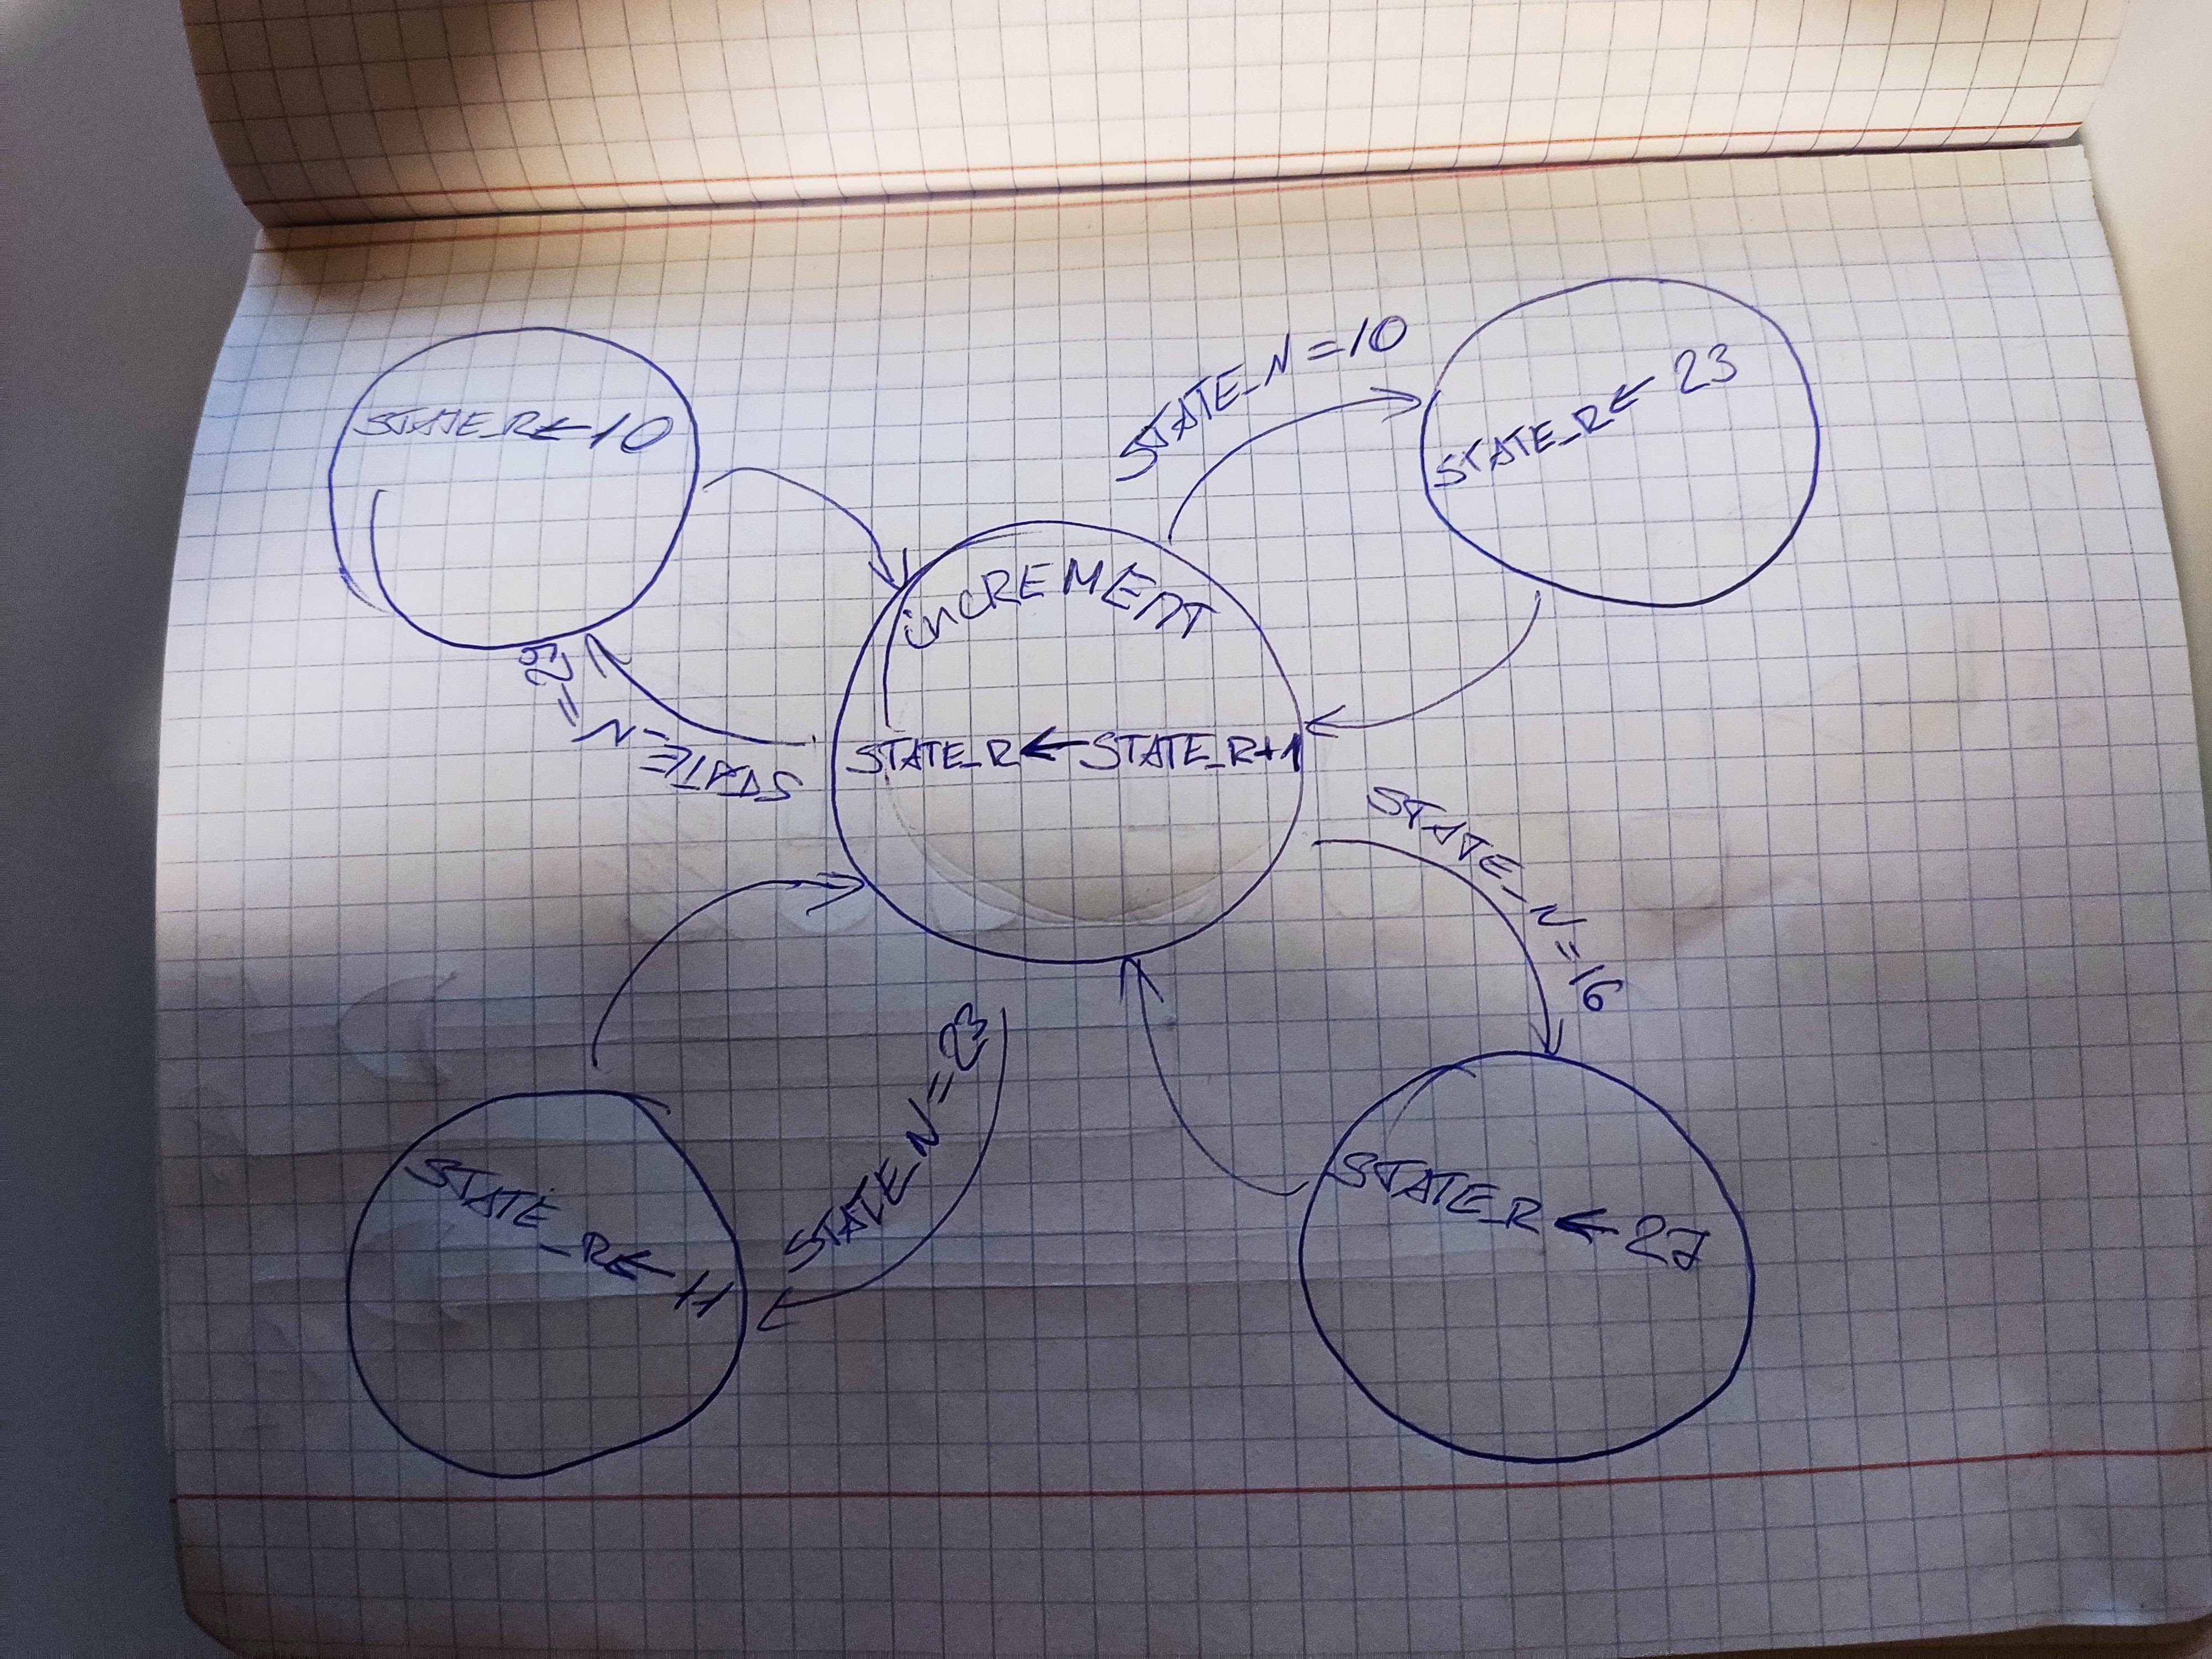 STATE_N=10
STATE_R←23
STATE_R←10
INCREMENT
STATE_R←STATE_R+1
STATE_N=
STATE_N=16
STATE_N=23
STATE_R←11
STATE_R←27